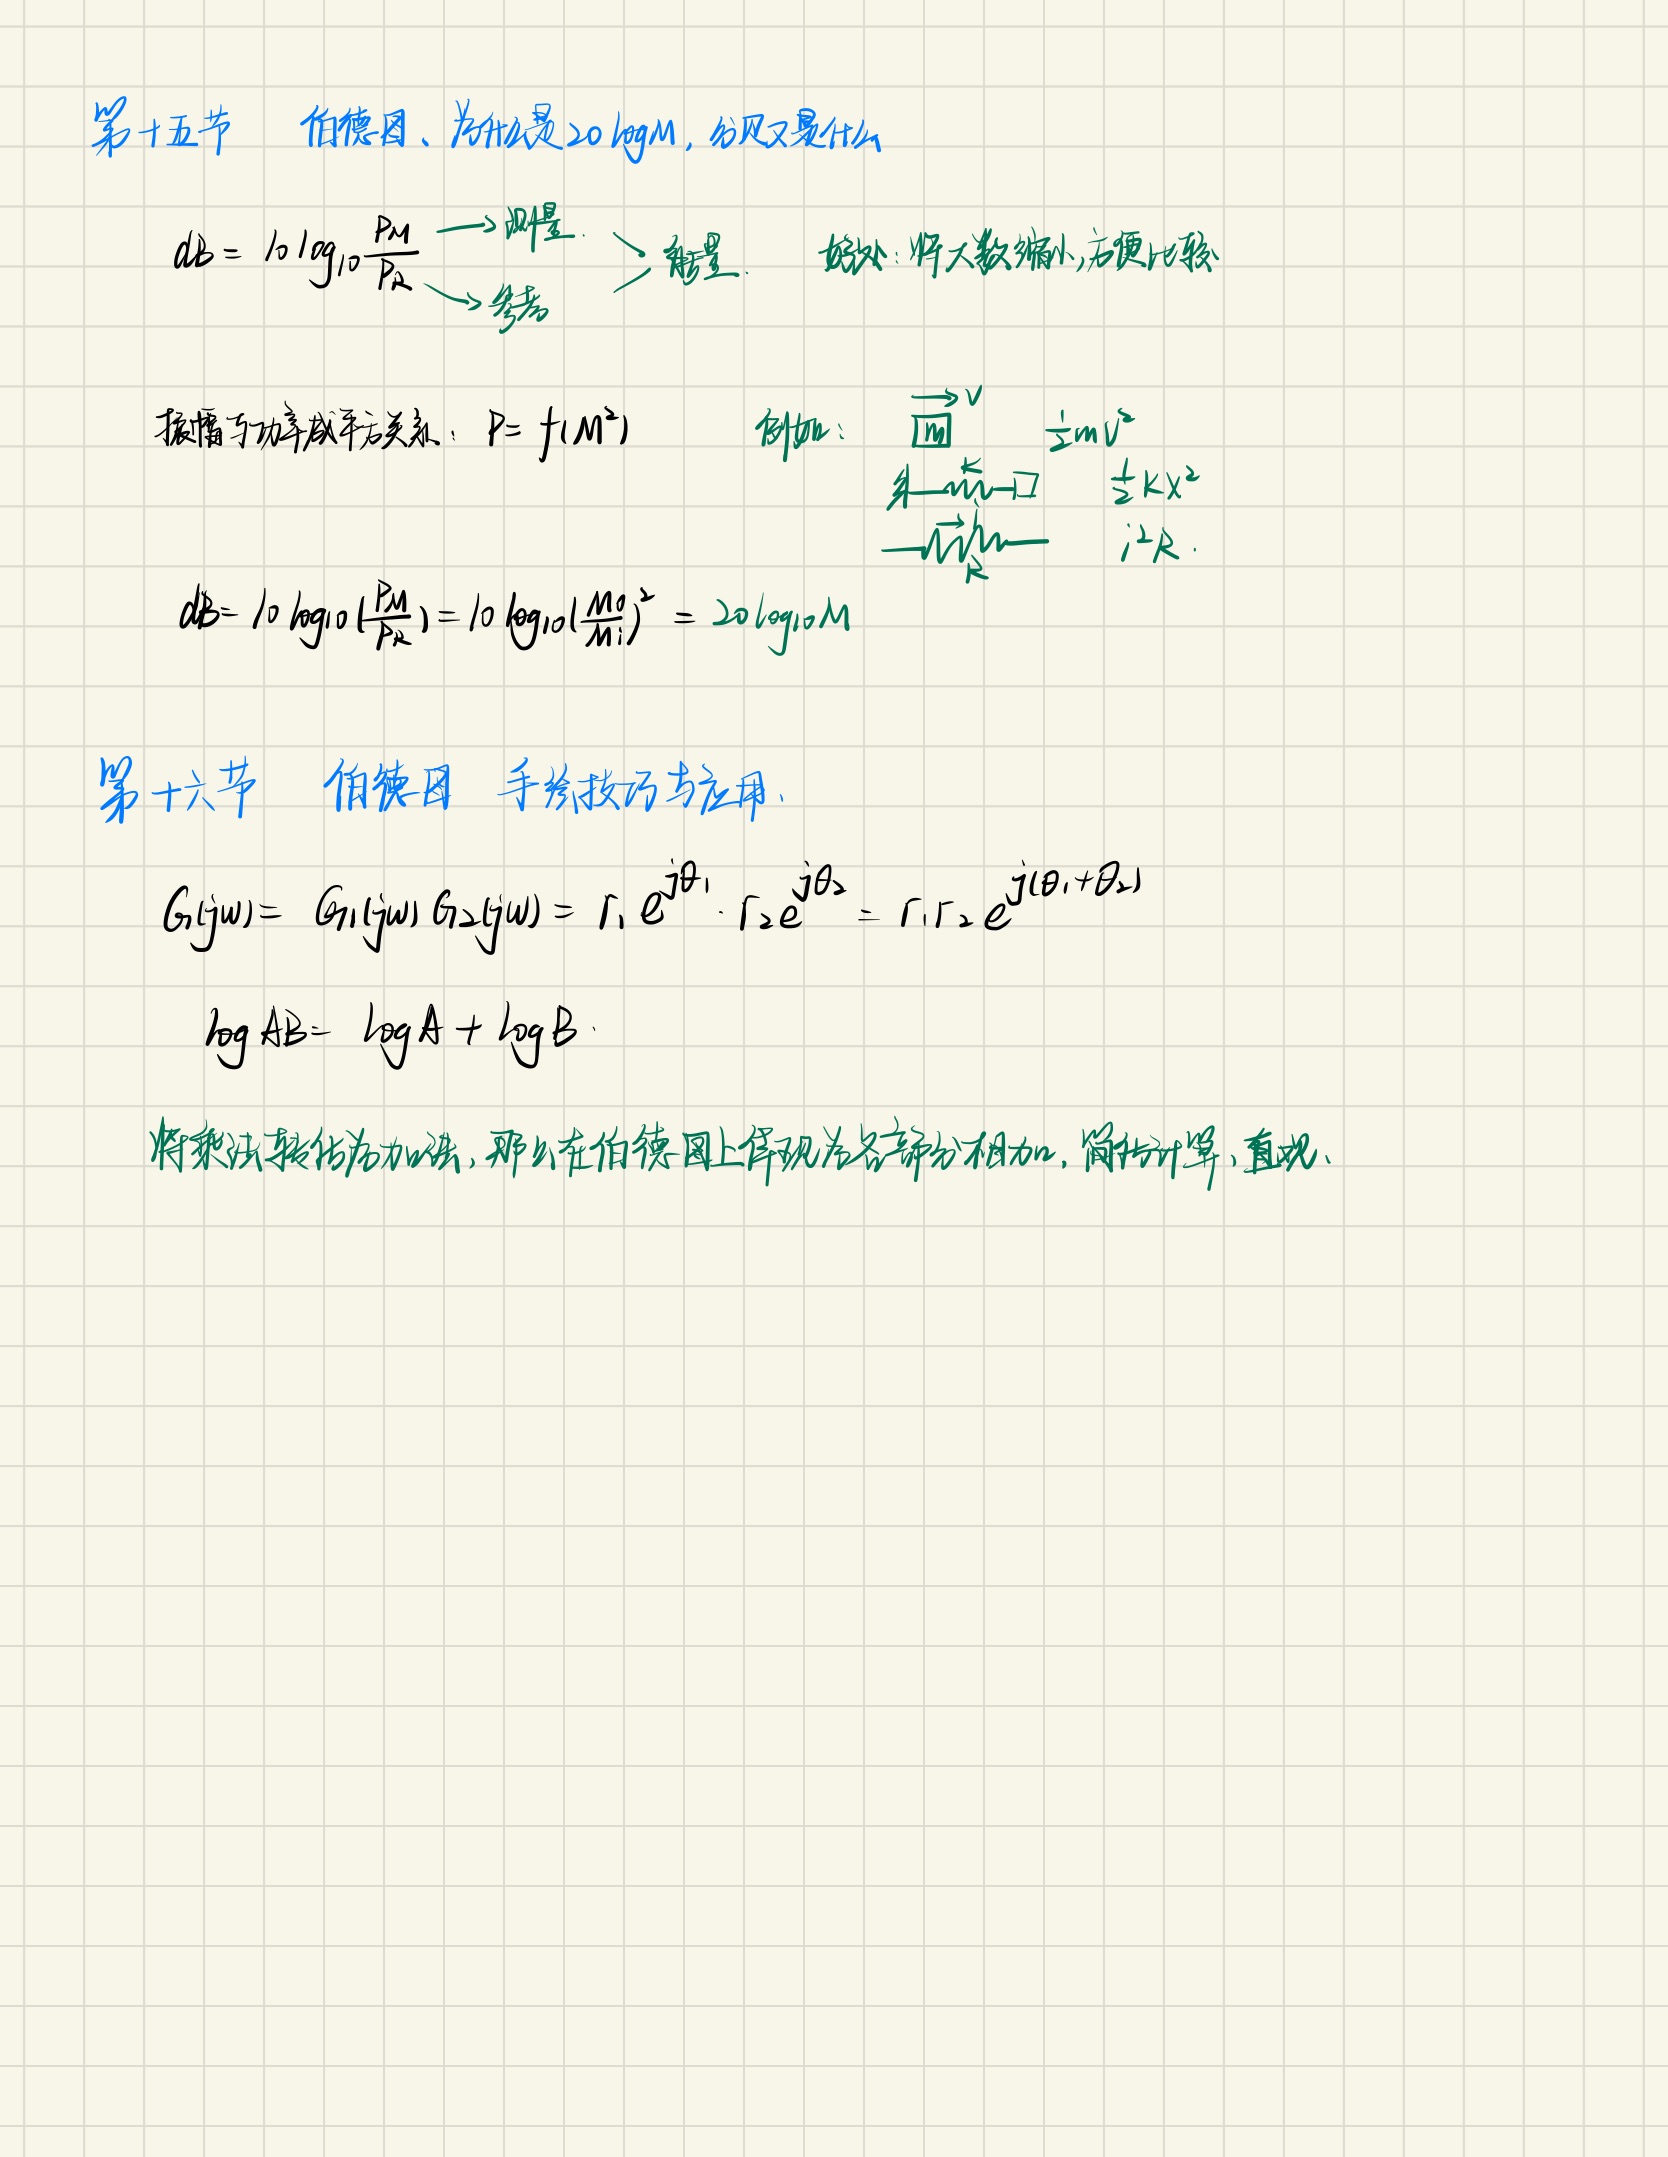 第十五节 伯德图、为什么是20logM,分贝又是什么
dB = 10 log₁₀ P_M/P_R → 测量 → 能量. 好处:将大数缩小,方便比较
→ 参考
振幅与功率成平方关系: P = f(M²) 例如: m → v ½mv²
k ½kx²
i R i²R.
dB = 10 log₁₀(P_M/P_R) = 10 log₁₀(M₀/Mᵢ)² = 20log₁₀M
第十六节 伯德图 手绘技巧与应用.
G(jω) = G₁(jω) G₂(jω) = r₁e^{jθ₁}·r₂e^{jθ₂} = r₁r₂e^{j(θ₁+θ₂)}
log AB = log A + log B.
将乘法转化为加法,那么在伯德图上体现为各部分相加,简化计算,直观.